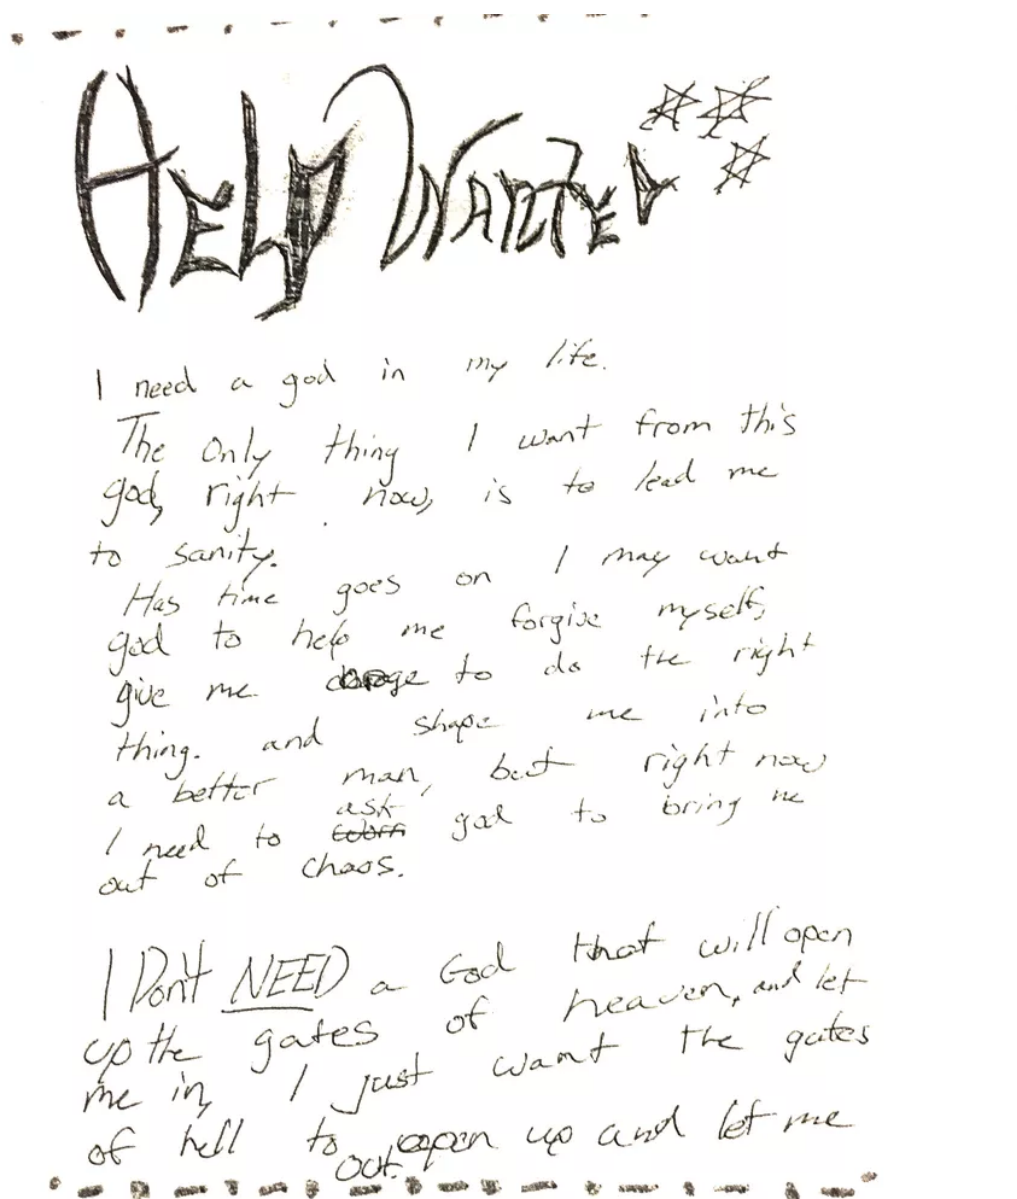 HELP WANTED
I need a god in my life.
The Only thing I want from this
god, right now, is to lead me
to sanity.
Has time goes on I may want
god to help me forgive myself,
give me to do the right
thing. and shape me into
a better man, but right now
ask
I need to god to bring me
out of chaos.
I Don't NEED a God that will open
up the gates of heaven, and let
me in, I just want the gates
of hell to open up and let me
out.